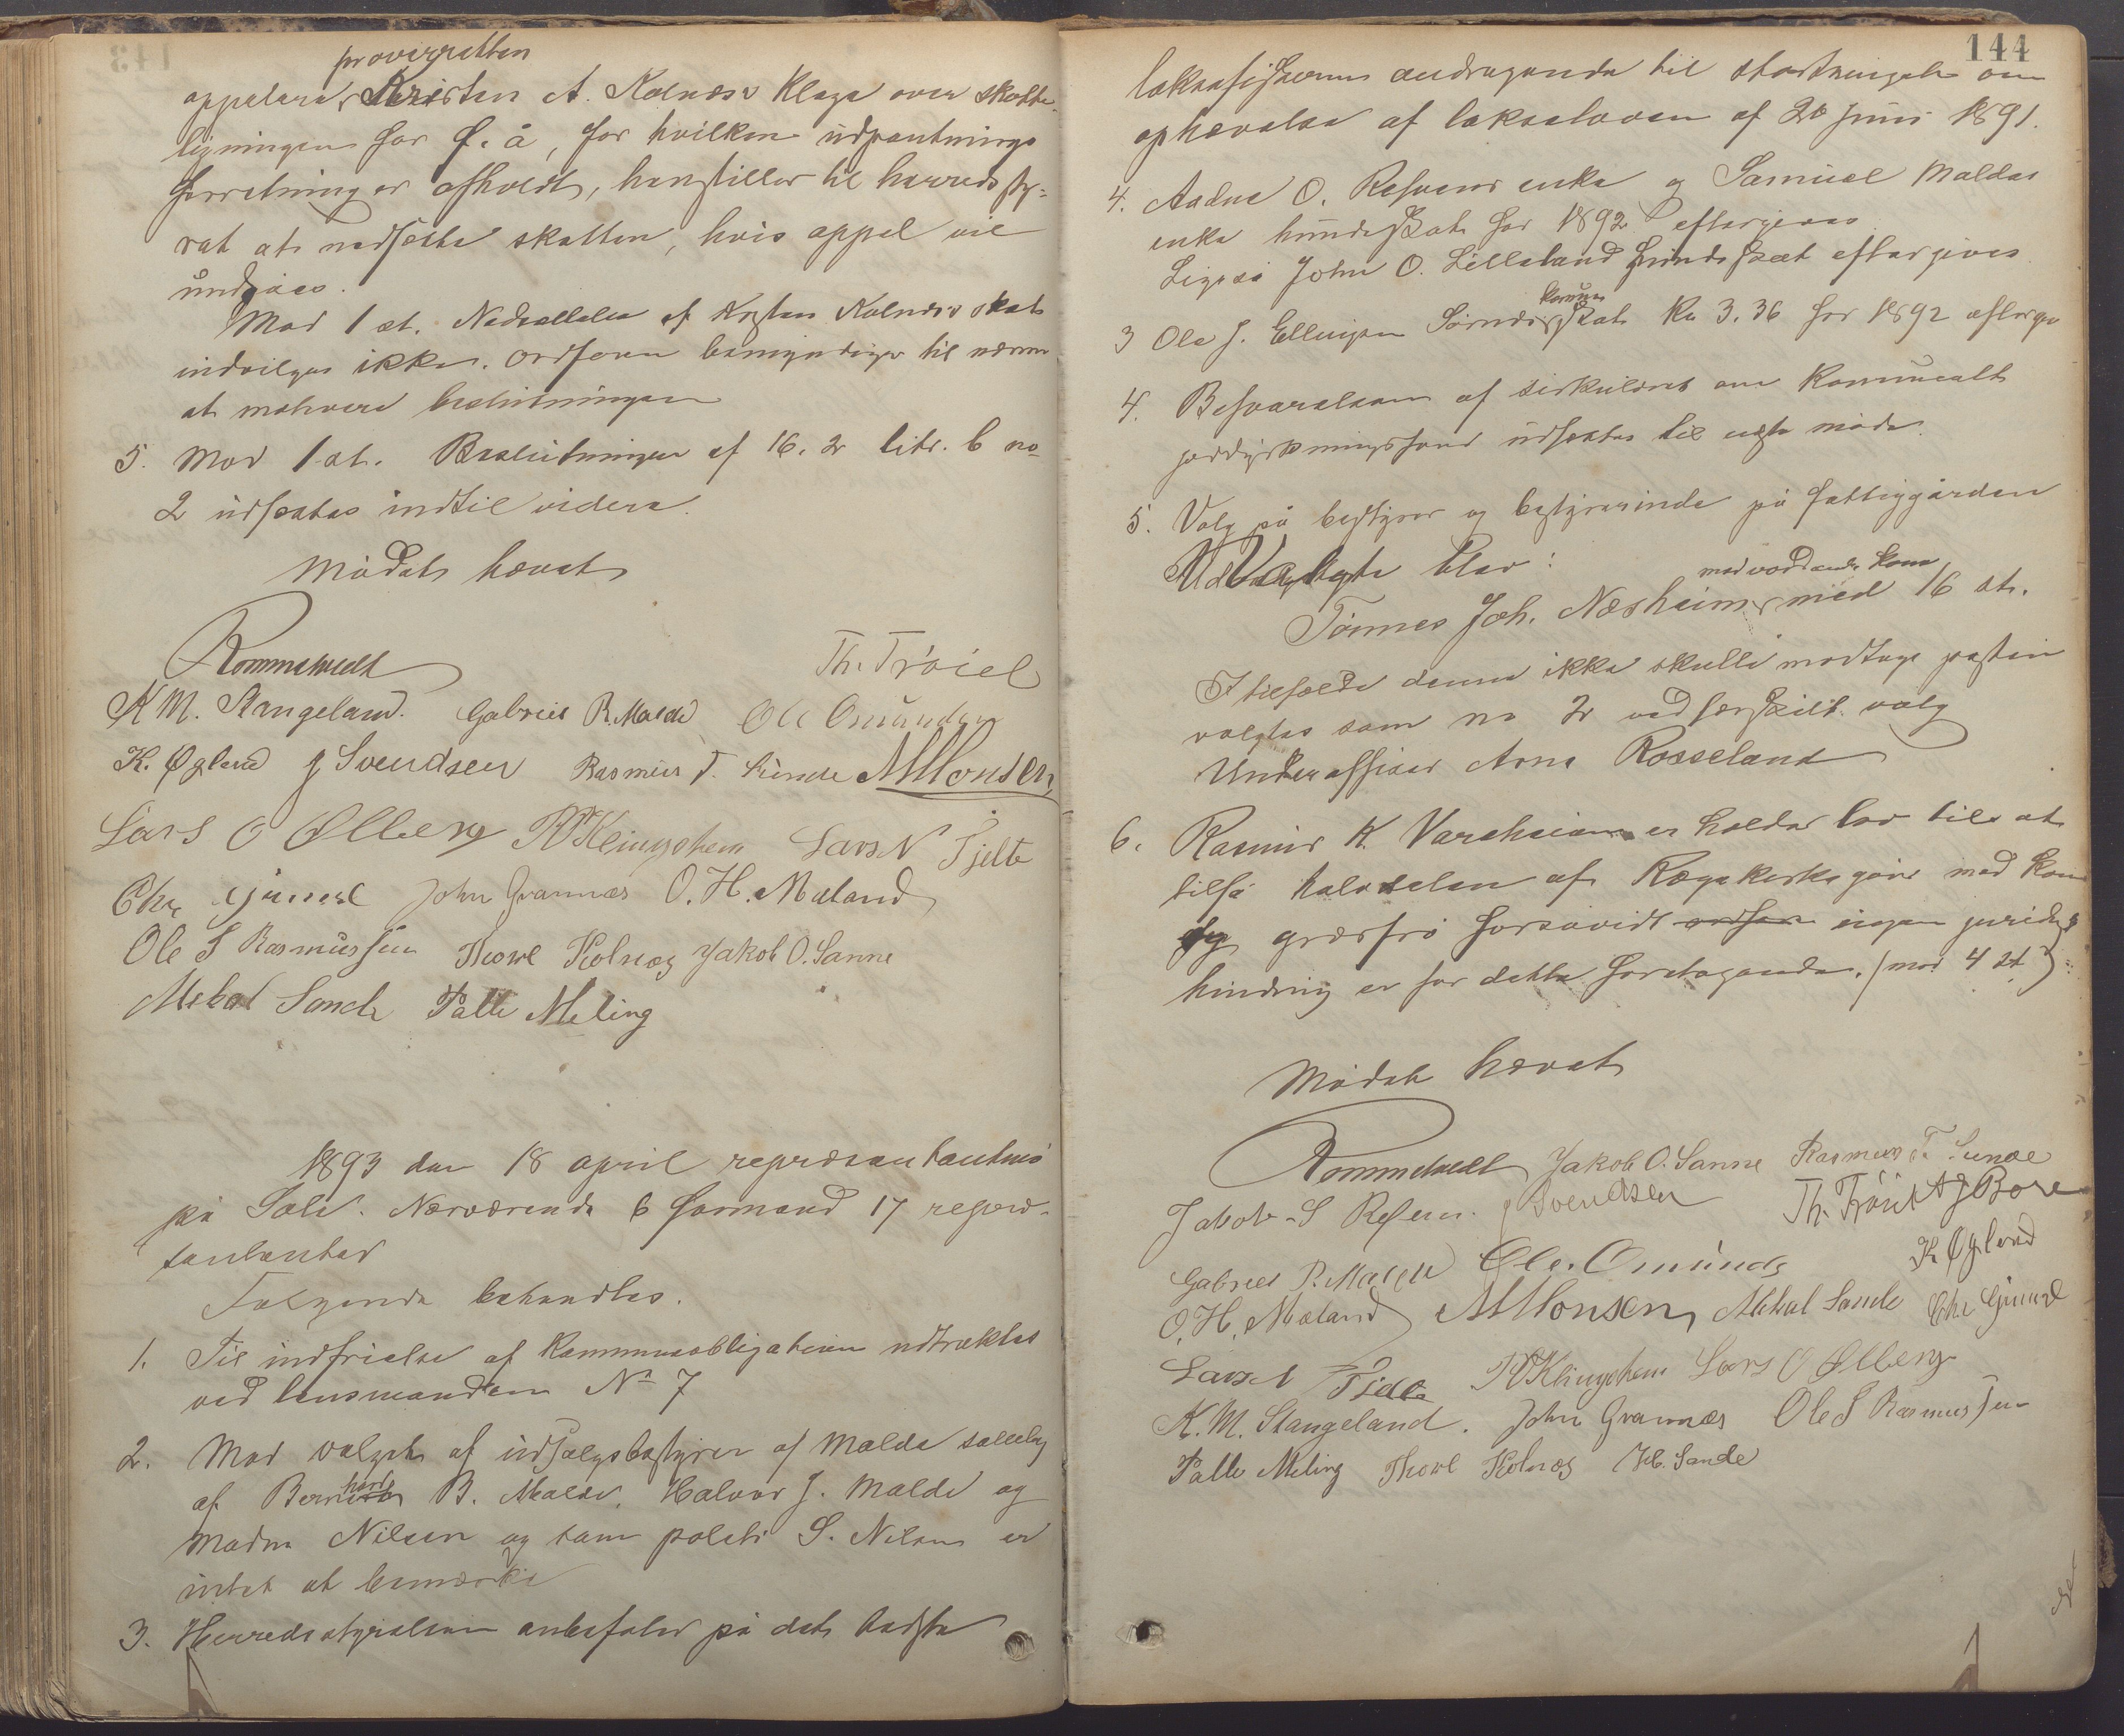 proverretten
appelere Kristen A. Kolnæs's klage over skatte-
ligningen for f. å, for hvilken udpantnings
forretning er afholdt, henstiller til herredssty-
ret at nedsætte skatten, hvis appel vil
undgåes.
Mod 1 st. Nedsættelse af Kristen Kolnæs's skat
indvilges ikke. Ordføren bemyndiges til nærmere
at motivere beslutningen
5. Mod 1 st. Beslutningen af 16. 2 litr. b no
2 udsættes indtil videre.
Mødet hævet
Rommetvedt
Th. Tröiel
K M. Stangeland. Gabriel R. Malde Ole Omundsen
K. Øglend J Svendsen Rasmus T. Sunde A M Monsen
Lars O Ølberg R Klingsheim Lars N Tjelte
Chr Gimre John Grannæs O. H. Mæland
Ole S Rasmussen Thore Kolnæs Jakob O. Sanne
Mikal Sande Palle Meling
1893 den 18 april repræsentantmö
på Sole. Nærværende 6 formænd 17 repræ-
sentanter
Følgende behandles.
1. Til indfrielse af kommuneobligationer udtrækkes
ved lensmanden No 7
2. Mod valget af udsalgsbestyrer af Malde sællag
af Bernhard B. Malde, Halvor J. Malde og
Madm Nilsen og som politi S. Nilsen er
intet at bemærke
3. Herredsstyrelsen anbefaler på det bedste
144
laksefiskernes andragende til stortinget om
ophævelse af lakseloven af 20 Juni 1891.
4. Aadne O. Refsnes enke og Samuel Maldes
enke hundeskat for 1892 eftergives
Ligeså John O. Lilleland hundeskat eftergives
komune
3 Ole J. Ellingsen Sörnæs skat Kr 3.36 for 1892 eftergi
4. Besvarelsen af sirkulæret om kommunalt
jorddyrkningsfond udsættes til neste möde.
5. Valg på bestyrer og bestyrerinde på fattiggården
Udvalgte blev:
med vordende kone
Tönnes Joh. Næsheim med 16 st.
I tilfælde denne ikke skulle modtage posten
valgtes som no 2 ved særskilt valg
Underofficer Arne Rosseland
6. Rasmus K. Vareheim er holder lov til at
tilså halvdelen af Rægekirke gård med korn
og græsfrö forsåvidt ingen juridisk
hindring er for dette foretagende. (mod 4 st)
Mödet hævet
Rommetvedt Jakob O. Sanne Rasmus T. Sunde
Jakob S Refsnes J Svendsen Th. Tröiel A J Bore
Gabriel R. Malde Ole. Omunds K Øglend
O. H. Mæland A M Monsen Mikal Sande Chr Gimre
Lars N Tjelte R Klingsheim Lars O Ølberg
K. M. Stangeland. John Grannæs Ole S Rasmussen
Palle Meling Thore Kolnæs H. Sande